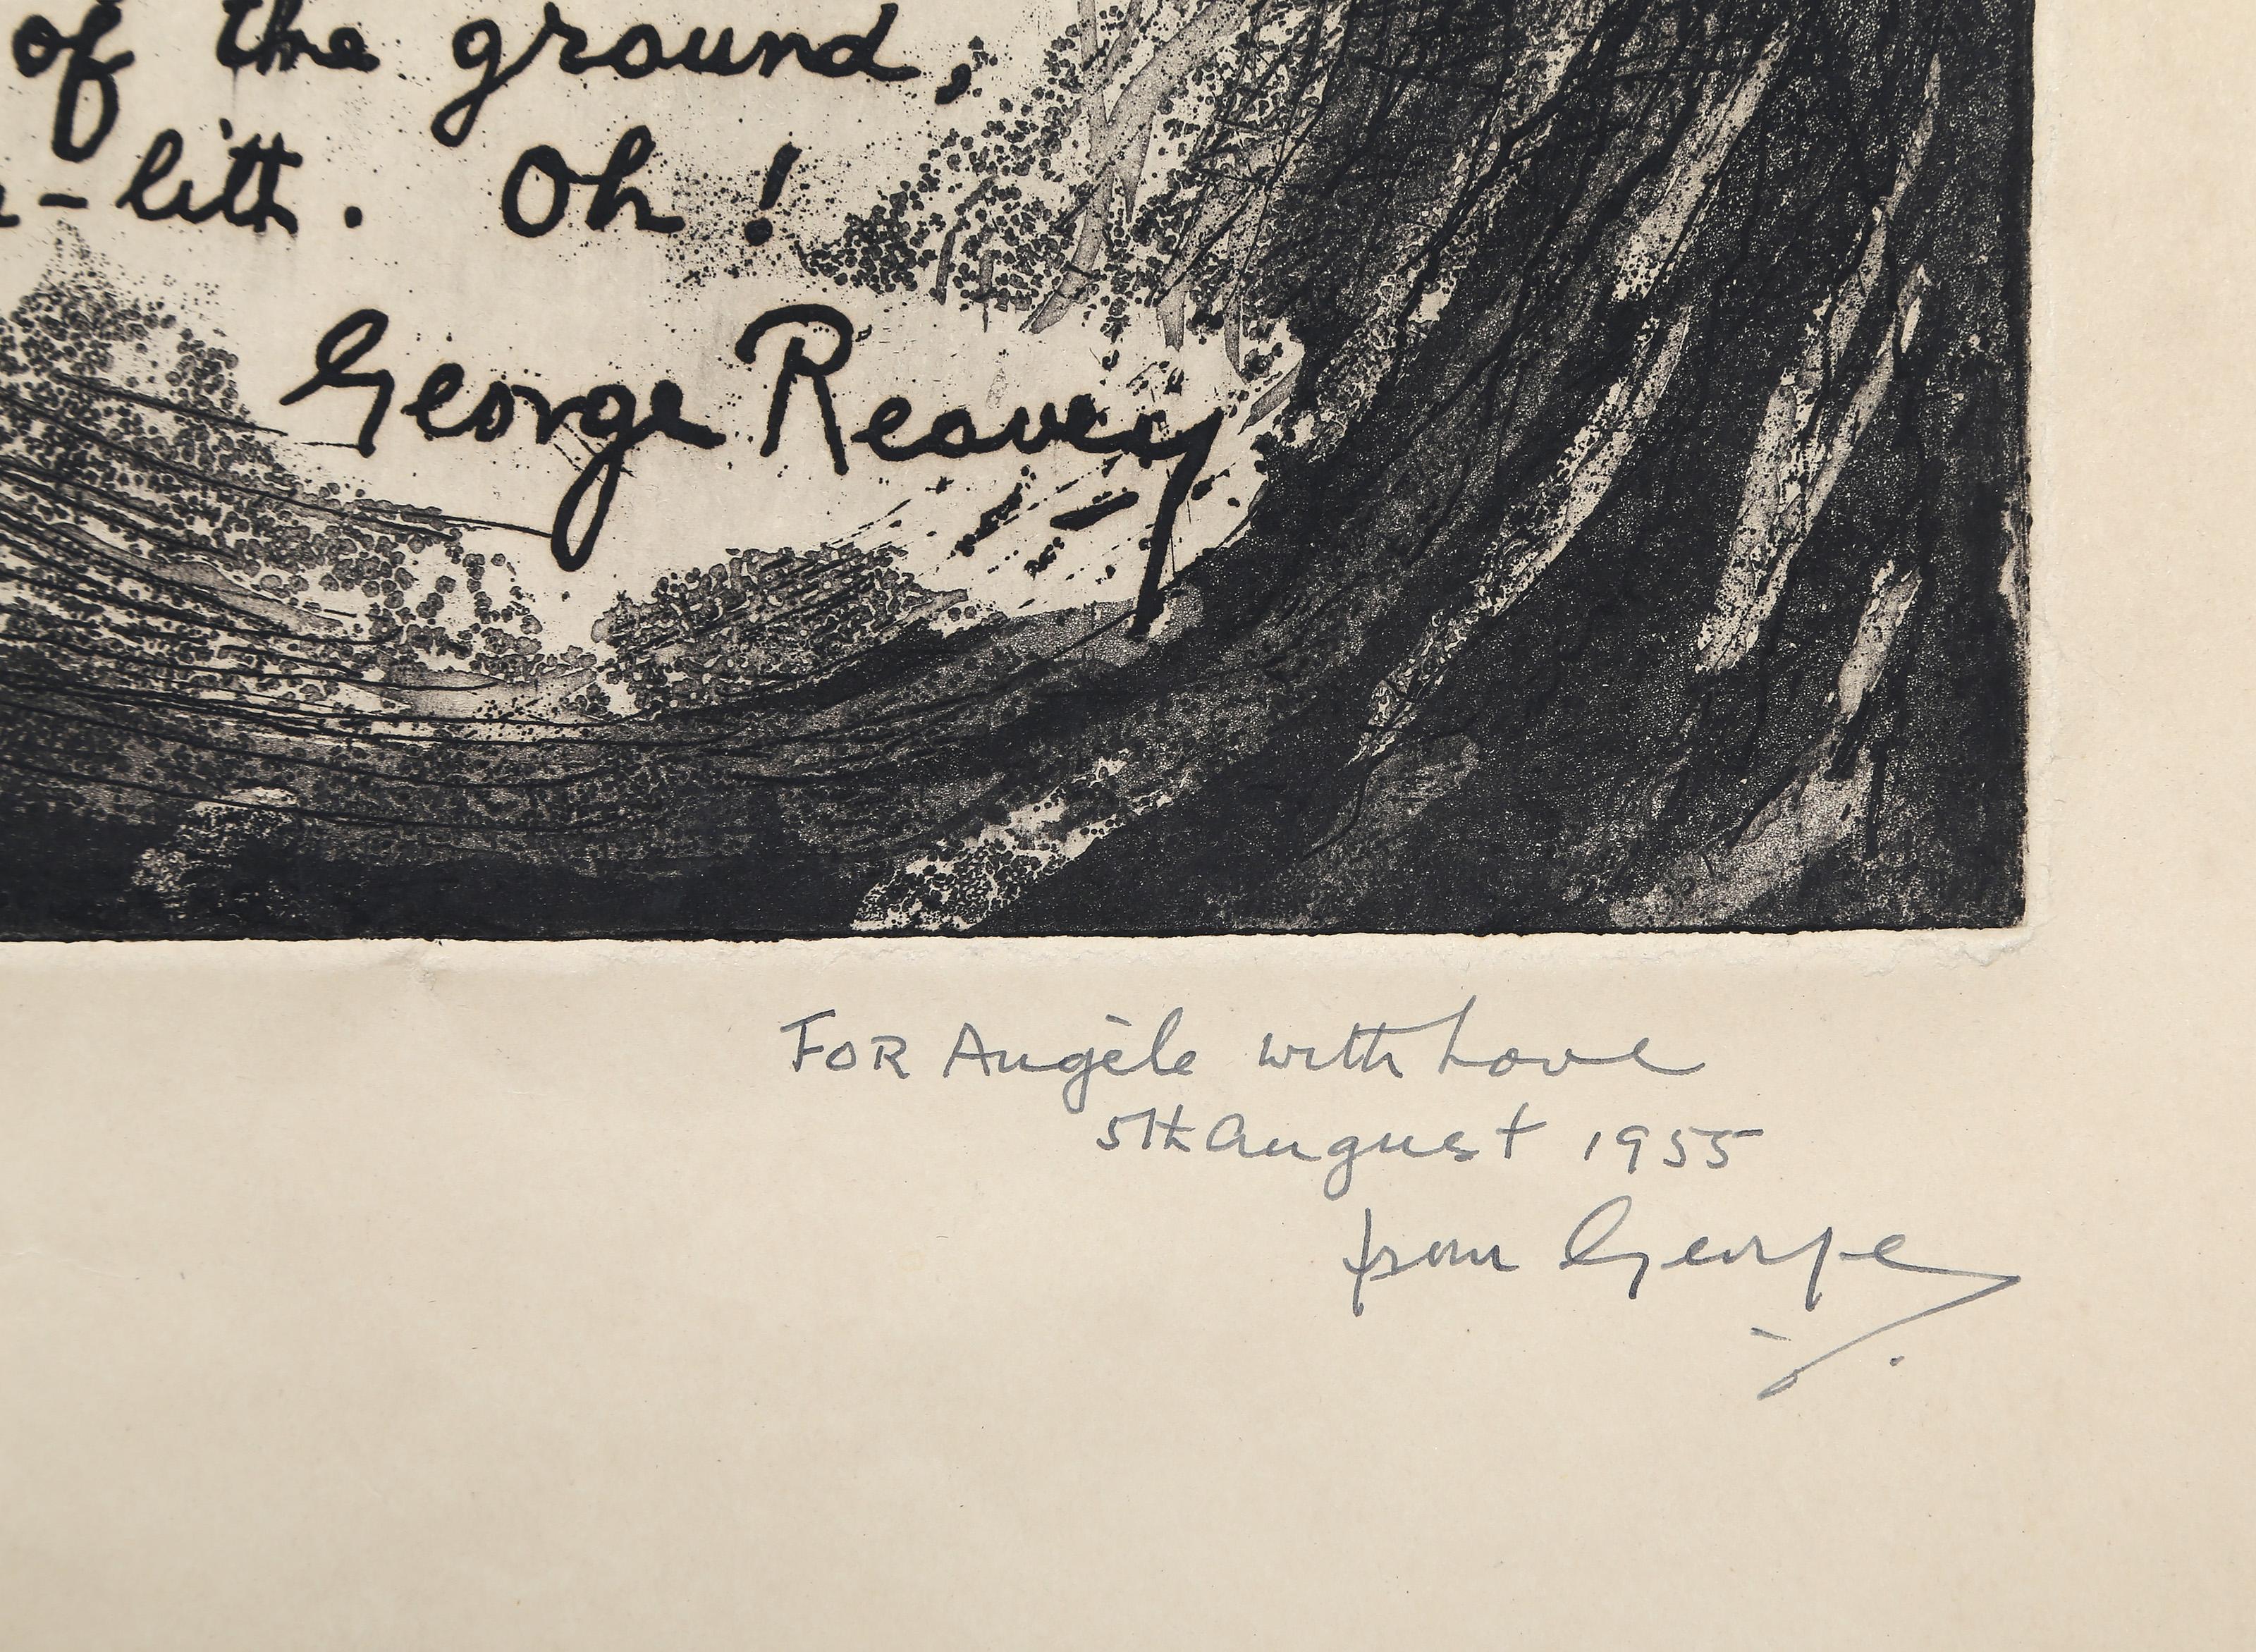 of the ground,
-litt. Oh!
George Reavey
FOR Angèle with Love
5th August 1955
from George